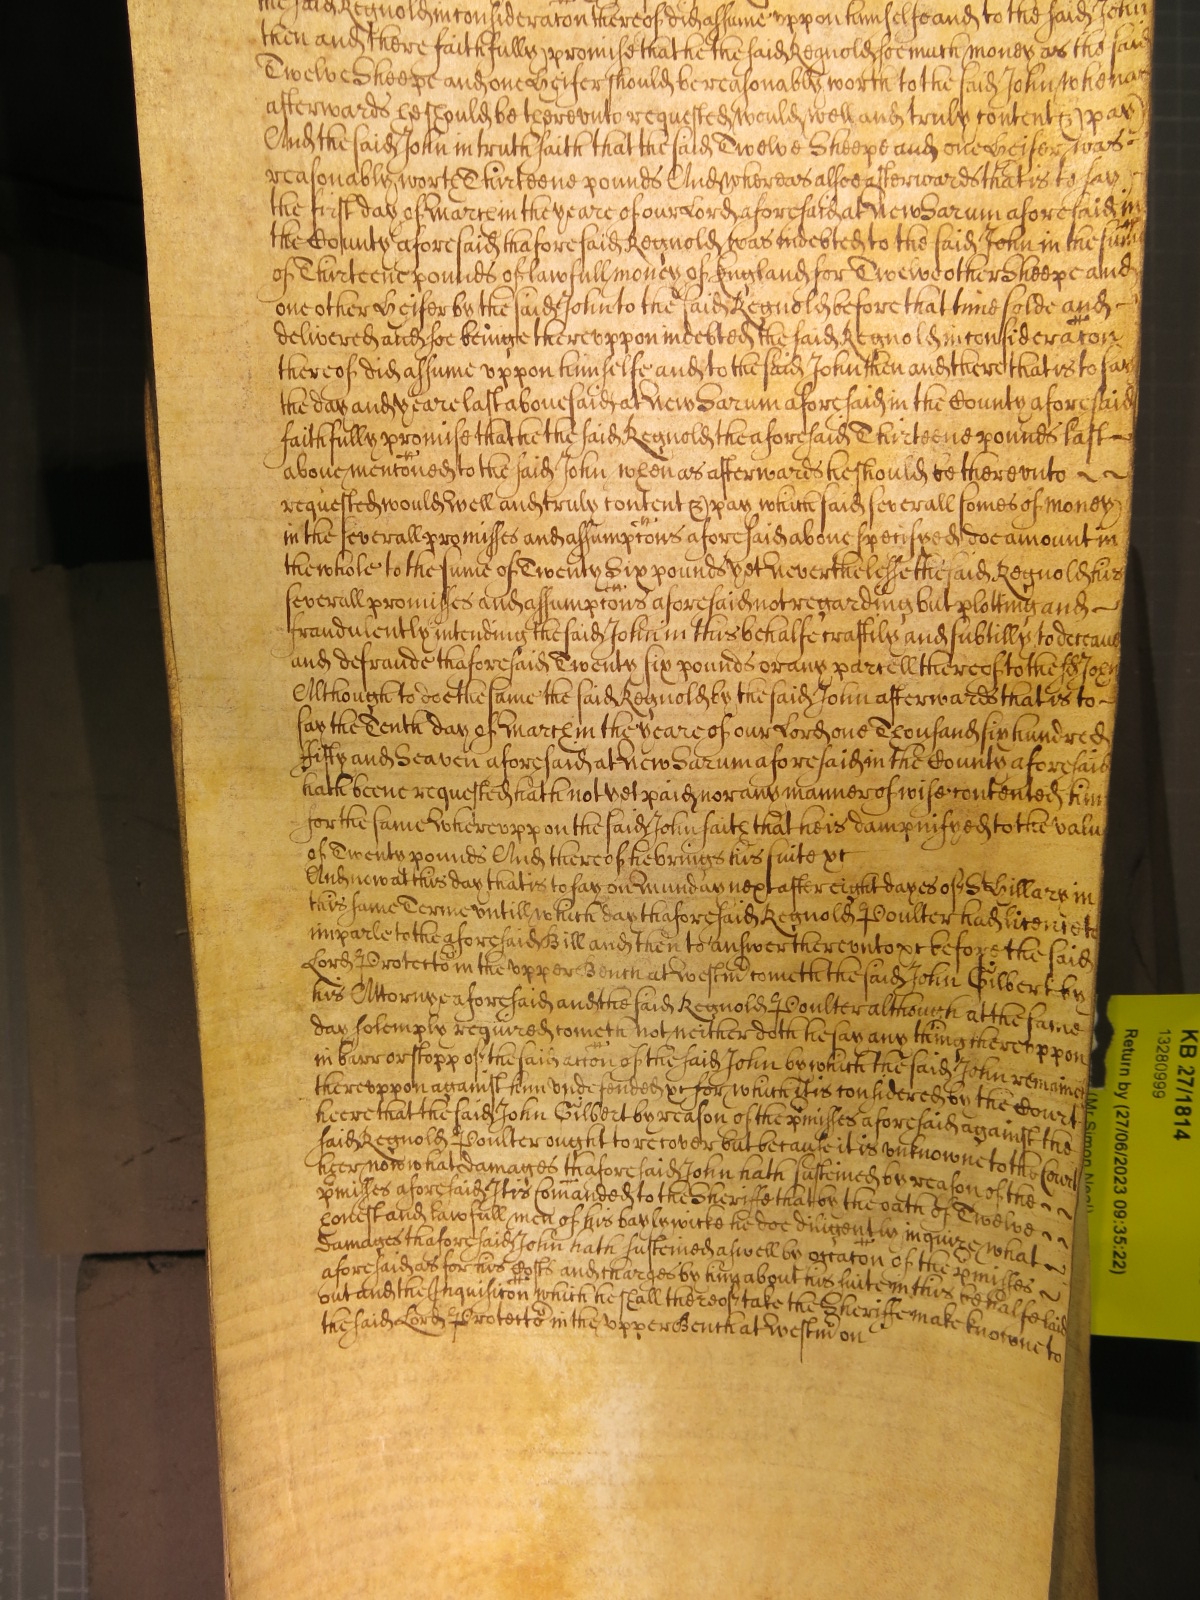 the said Regnold in consideraton thereof did assume vppon himselfe and to the said John
then and there faithfully promise that he the said Regnold soe much money as the said
Twelve Sheepe and one Heifer should be reasonably worth to the said John when as
afterwards he should be therevnto requested would well and truly content & pay
And the said John in truth saith that the said Twelve Sheepe and one Heifer was
reasonably worth Thirteene pounds And whereas alsoe afterwards that is to say
the first day of March in the yeare of our Lord aforesaid at New Sarum aforesaid in
the County aforesaid thaforesaid Regnold was indebted to the said John in the sume
of Thirteene pounds of lawfull money of England for Twelve other Sheepe and
one other Heifer by the said John to the said Regnold before that time solde and
delivered and soe beinge therevppon indebted the said Regnold in consideraton
thereof did assume vppon himselfe and to the said John then and there that is to say
the day and yeare last abouesaid at New Sarum aforesaid in the County aforesaid
faithfully promise that he the said Regnold the aforesaid Thirteene pounds last
aboue mentoned to the said John when as afterwards he should be therevnto
requested would well and truly content & pay which said severall somes of money
in the severall promisses and assumptons aforesaid aboue specifyed doe amount in
the whole to the sume of Twenty Six pounds yet neverthelesse the said Regnold his
severall promisses and assumptons aforesaid not regarding but plotting and
fraudulently intending the said John in this behalfe craftily and subtilly to deceaue
and defraude thaforesaid Twenty six pounds or any parcell thereof to the sd John
Although to doe the same the said Regnold by the said John afterwards that is to
say the Tenth day of March in the yeare of our Lord one Thousand six hundred
fifty and Seaven aforesaid at New Sarum aforesaid in the County aforesaid
hath beene requested hath not yet paid nor any manner of wise contented him
for the same Wherevppon the said John saith that he is dampnifyed to the valu
of Twenty pounds And thereof he brings his suite &c
And now at this day that is to say on Munday next after eight dayes of St Hillary in
this same Terme vntill which day thaforesaid Regnold Poulter had licence to
imparle to the aforesaid Bill and then to answer therevnto &c before the said
Lord Protector in the vpper Bench at Westm cometh the said John Gilbert by
his Attorny aforesaid and the said Regnold Poulter although at the same
day solemply required cometh not neither doth he say any thing therevppon
in barr or stopp of the said acton of the said John by which the said John remaines
therevppon against him vndefended &c for which it is considered by the Court
heere that the said John Gilbert by reason of the pmisses aforesaid against the
said Regnold Poulter ought to recover but because it is vnknowne to the Court
heer now what damages thaforesaid John hath susteined by reason of the
pmisses aforesaid It is Comanded to the Sheriffe that by the oath of Twelve
honest and lawfull men of his baylywicke he doe diligently inquire what
damages thaforesaid John hath susteined aswell by occaton of the pmisses
aforesaid as for his Costs and charges by him about his suite in this behalfe laid
out and the Inquisiton which he shall thereof take the Sheriffe make knowne to
the said Lord Protector in the vpper Bench at Westm on
KB 27/1814
13280999
(Mr Simon Neal)
Return by (27/06/2023 09:35:22)